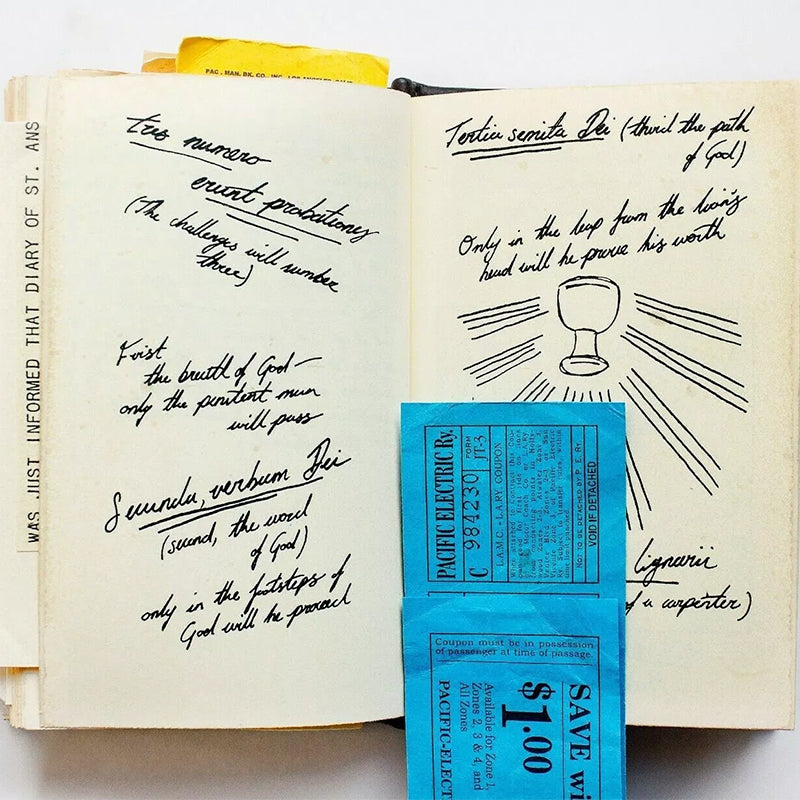 PAC. MAN. BK. CO., INC., LOS ANGELES
WAS JUST INFORMED THAT DIARY OF ST. ANS
tres numero
erunt probationes
(The challenges will number
three)
First
the breath of God—
only the penitent man
will pass
Secunda, verbum Dei
(second, the word
of God)
only in the footsteps of
God will he proceed
Tertia semita Dei (third the path
of God)
Only in the leap from the lion's
head will he prove his worth
lignarii
of a carpenter)
PACIFIC ELECTRIC Ry.
FORM
JT-3
C 984230
L.A.M.C.-LARY COUPON
NOT TO BE DETACHED BY P. E. RY.
VOID IF DETACHED
Coupon must be in possession
of passenger at time of passage.
SAVE wi
$1.00
Available for Zone 1,
Zones 2, 3 & 4, and
All Zones
PACIFIC-ELECT